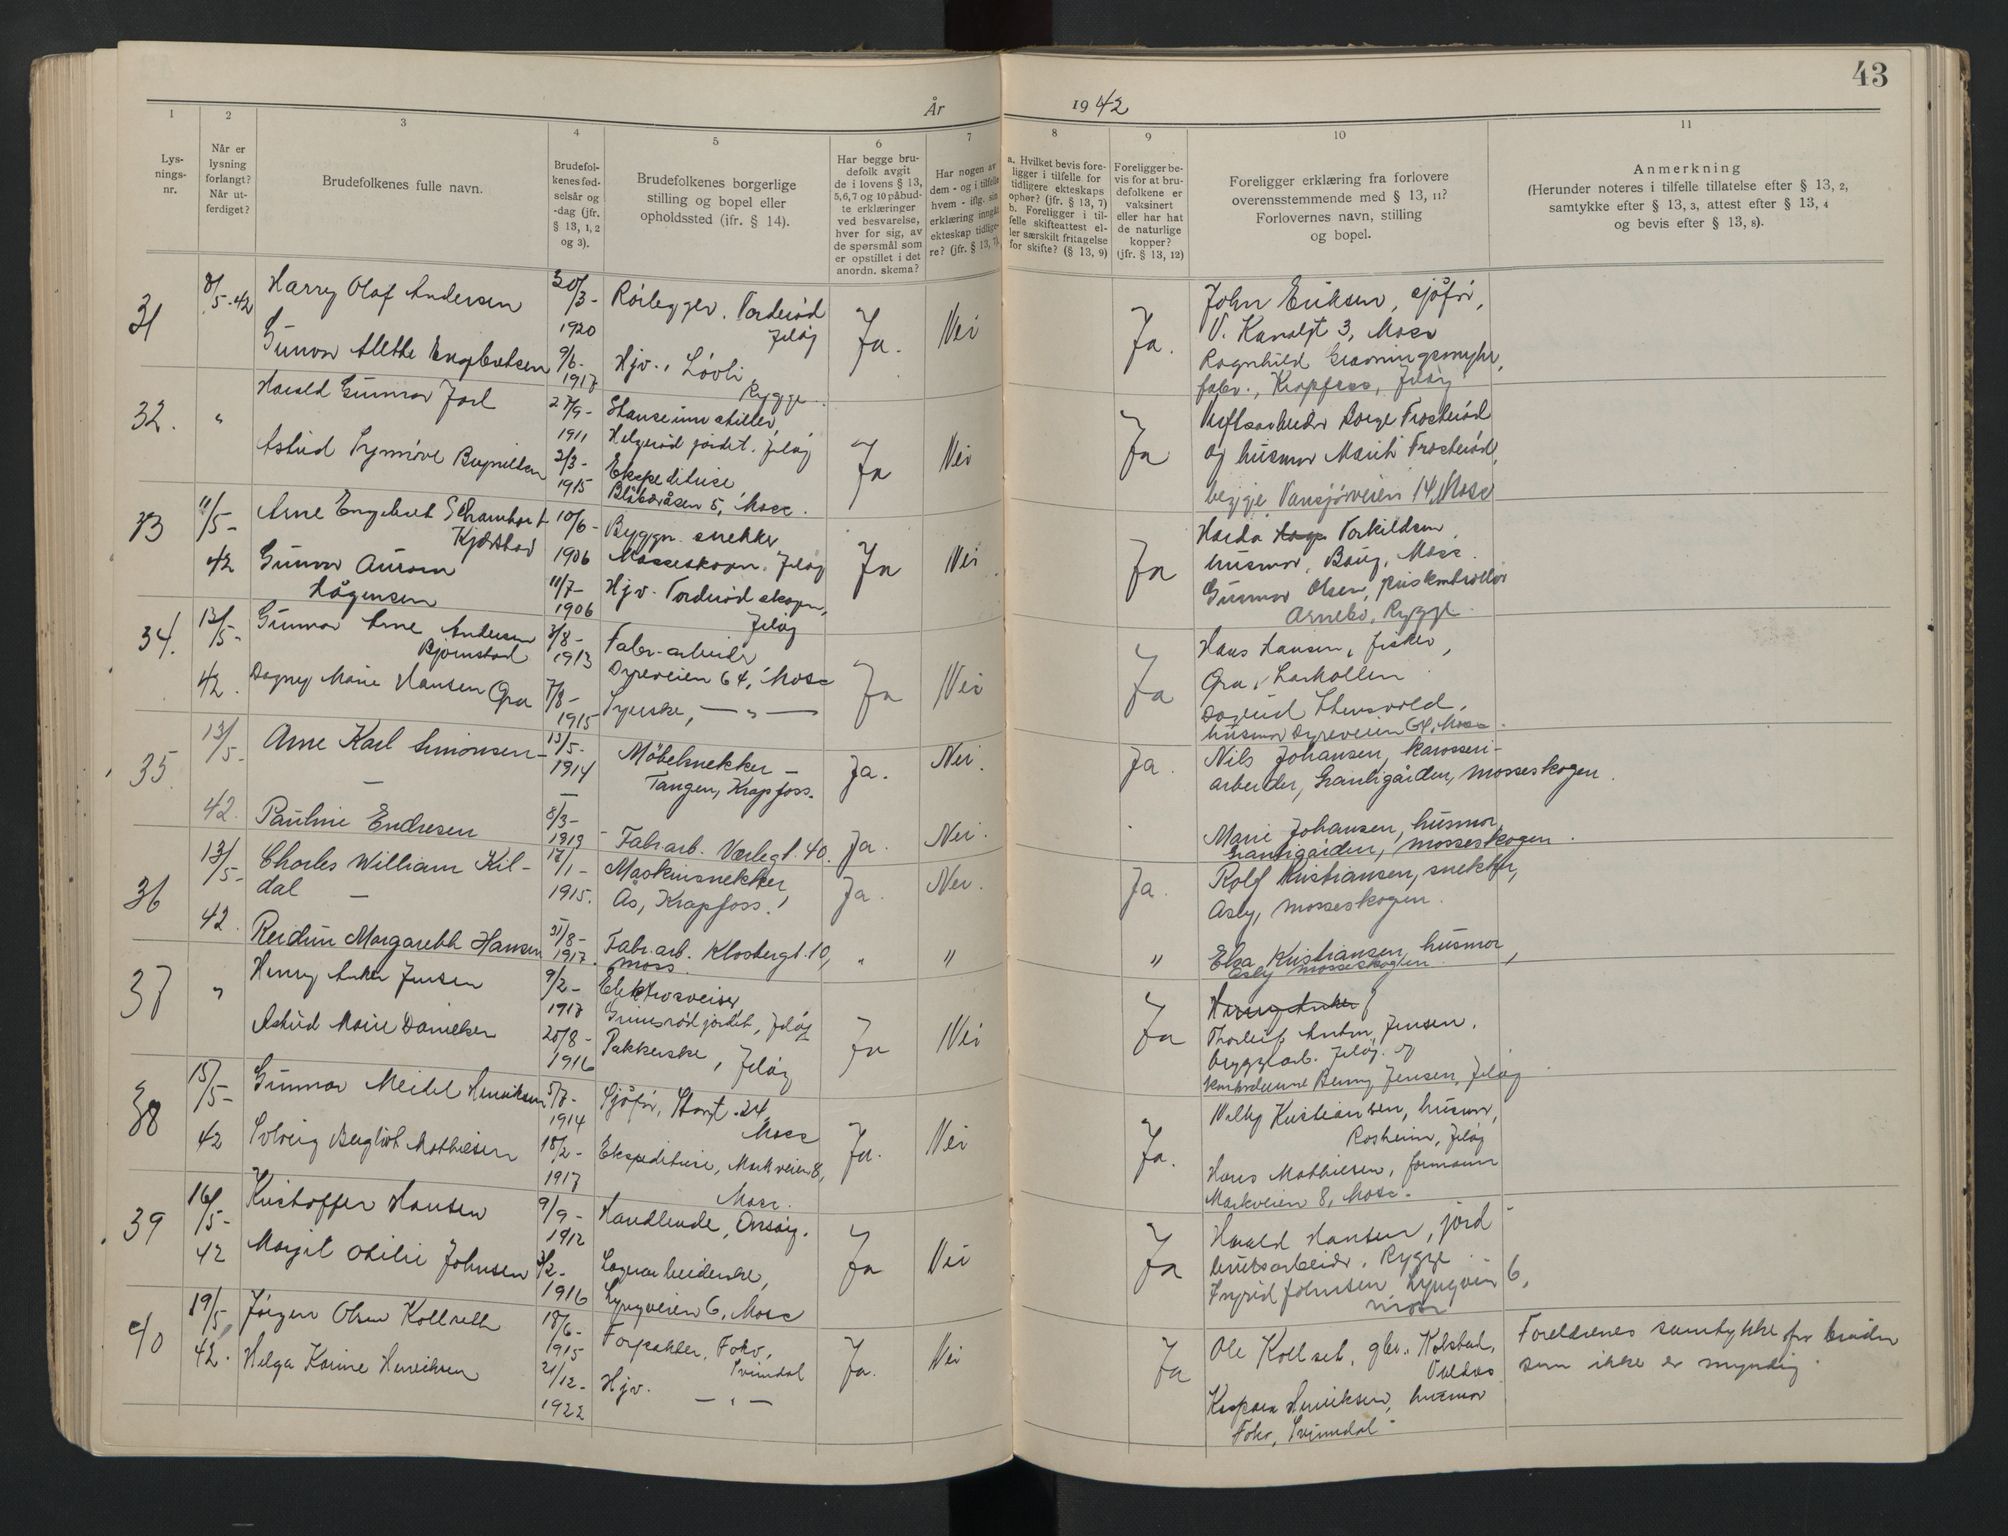 43
År 1942
1 2 3 4 5 6 7 8 9 10 11
Lys-
nings-
nr.
Når er
lysning
forlangt?
Når ut-
ferdiget?
Brudefolkenes fulle navn.
Brudefol-
kenes fød-
selsår og
-dag (jfr.
§ 13, 1, 2
og 3).
Brudefolkenes borgerlige
stilling og bopel eller
opholdssted (jfr. § 14).
Har begge bru-
defolk avgit
de i lovens § 13,
5,6,7 og 10 påbud-
te erklæringer
ved besvarelse,
hver for sig, av
de spørsmål som
er opstillet i det
anordn. skema?
Har nogen av
dem - og i tilfelle
hvem - iflg. sin
erklæring inngått
ekteskap tidlige-
re? (jfr. § 13, 7).
a. Hvilket bevis fore-
ligger i tilfelle for
tidligere ekteskaps
ophør? (jfr. § 13, 7)
b. Foreligger i til-
felle skifteattest el-
ler særskilt fritagelse
for skifte? (§ 13, 9)
Foreligger be-
vis for at bru-
defolkene er
vaksinert
eller har hat
de naturlige
kopper?
(jfr. § 13, 12)
Foreligger erklæring fra forlovere
overensstemmende med § 13, 11?
Forlovernes navn, stilling
og bopel.
Anmerkning
(Herunder noteres i tilfelle tillatelse efter § 13, 2,
samtykke efter § 13, 3, attest efter § 13, 4
og bevis efter § 13, 8).
31
8/5-42
Harry Olaf Andersen
30/3-
1920
Rørlegger, Torderød
Jeløy
Gunvor Alethe Engebretsen
9/6-
1917
Hjv., Løvli
Rygge
Ja.
Nei
Ja.
John Eriksen, sjåfør,
V. Kanalgt 3, Moss
Ragnhild
fabr., Krapfoss, Jeløy
32.
"
Harald Gunnar Jarl
27/9-
1911
Stanseinnstiller,
Helgerød jordet, Jeløy
Astrid Synnøve
2/3-
1915
Ekspeditrise
Blåbæråsen 5, Moss.
Ja
Nei
Ja
Borge Frosterød
og husmor Marit Frosterød,
begge Vansjøveien 14, Moss
33
11/5-
42
Arne Engebret
Kjærstad
10/6-
1906
Byggn. snekker
Mosseskogen, Jeløy
Gunvor Aurora
Hågensen
11/7-
1906
Hjv. Torderød skogen,
Jeløy
Ja
Nei
Ja
Torkildsen
husmor, Moss.
Gunnar Olsen, priskontrollør
Arnebo, Rygge.
34.
13/5-
42.
Gunnar Arne Andersen
Bjørnstad
3/8-
1913
Fabr.arbeider
Dyreveien 64, Moss
Dagny Marie Hansen Gra
7/8-
1915
Syerske, — " —
Ja
Nei
Ja
Hans Hansen, fisker,
Gra, Larkollen
husmor Dyreveien 64, Moss.
35
13/5-
42.
Arne Karl Simonsen —
—
13/5-
1914
Møbelsnekker —
Tangen, Krapfoss.
Pauline Endresen
8/3-
1919
Fabr.arb. Værlegt. 40.
Ja.
Nei.
Ja.
Nei.
Ja.
Nils Johansen, karosseri-
arbeider, Granligården, Mosseskogen.
Marie Johansen, husmor,
Granligården, Mosseskogen.
36
13/5-
42.
Charles William Kil-
dal —
17/1-
1915.
Maskinsnekker
Ås, Krapfoss.
Reidun Margareth Hansen
31/8-
1917.
Fabr.arb. Klostergt. 10,
Moss.
Ja.
Nei.
"
"
Ja.
"
Rolf Kristiansen, snekker,
Asly, Mosseskogen.
Elsa Kristiansen, husmor,
Asly Mosseskogen
37
"
Henry Anker Jensen
9/2-
1917
Elektrosveiser
Grimsrød jordet, Jeløy
Astrid Marie Danielsen
20/8-
1916
Pakkerske, Jeløy
Ja
Nei
Ja
Henry Anker
Thorleif Anton Jensen,
bryggearb. Jeløy. og
kontordamme Benny Jensen, Jeløy.
38
15/5-
42
Gunnar Meidel Henriksen
5/7-
1914
Sjåfør, Storgt. 24,
Moss
Solveig Bergliot Mathiesen
18/2-
1917
Ekspeditrise, Markveien 8,
Moss.
Ja.
Nei
Ja.
Willy Kristiansen, husmor,
Rosheim, Jeløy
Hans Mathiesen, formann
Markveien 8, Moss.
39
16/5-
42
Kristoffer Hansen
9/9-
1912
Handlende, Onsøy.
Margit Otilie Johnsen
3/2-
1916
Lagerarbeiderske,
Lyngveien 6, Moss
Ja
Nei
Ja
Harald Hansen, jord-
bruksarbeider, Rygge
Ingrid Johnsen, Lyngveien 6,
Moss
40
19/5
42.
Jørgen Olsen Kollseth
18/6-
1915
Forpakter, Foko,
Svinndal
Helga Karine Henriksen
21/12-
1922
Hjv. — " —
Ja.
Nei
Ja
Ole Kollset, gbr., Kolstad,
Kaspara Henriksen, husmor
Foko, Svinndal
Foreldrenes samtykke for bruden
som ikke er myndig.